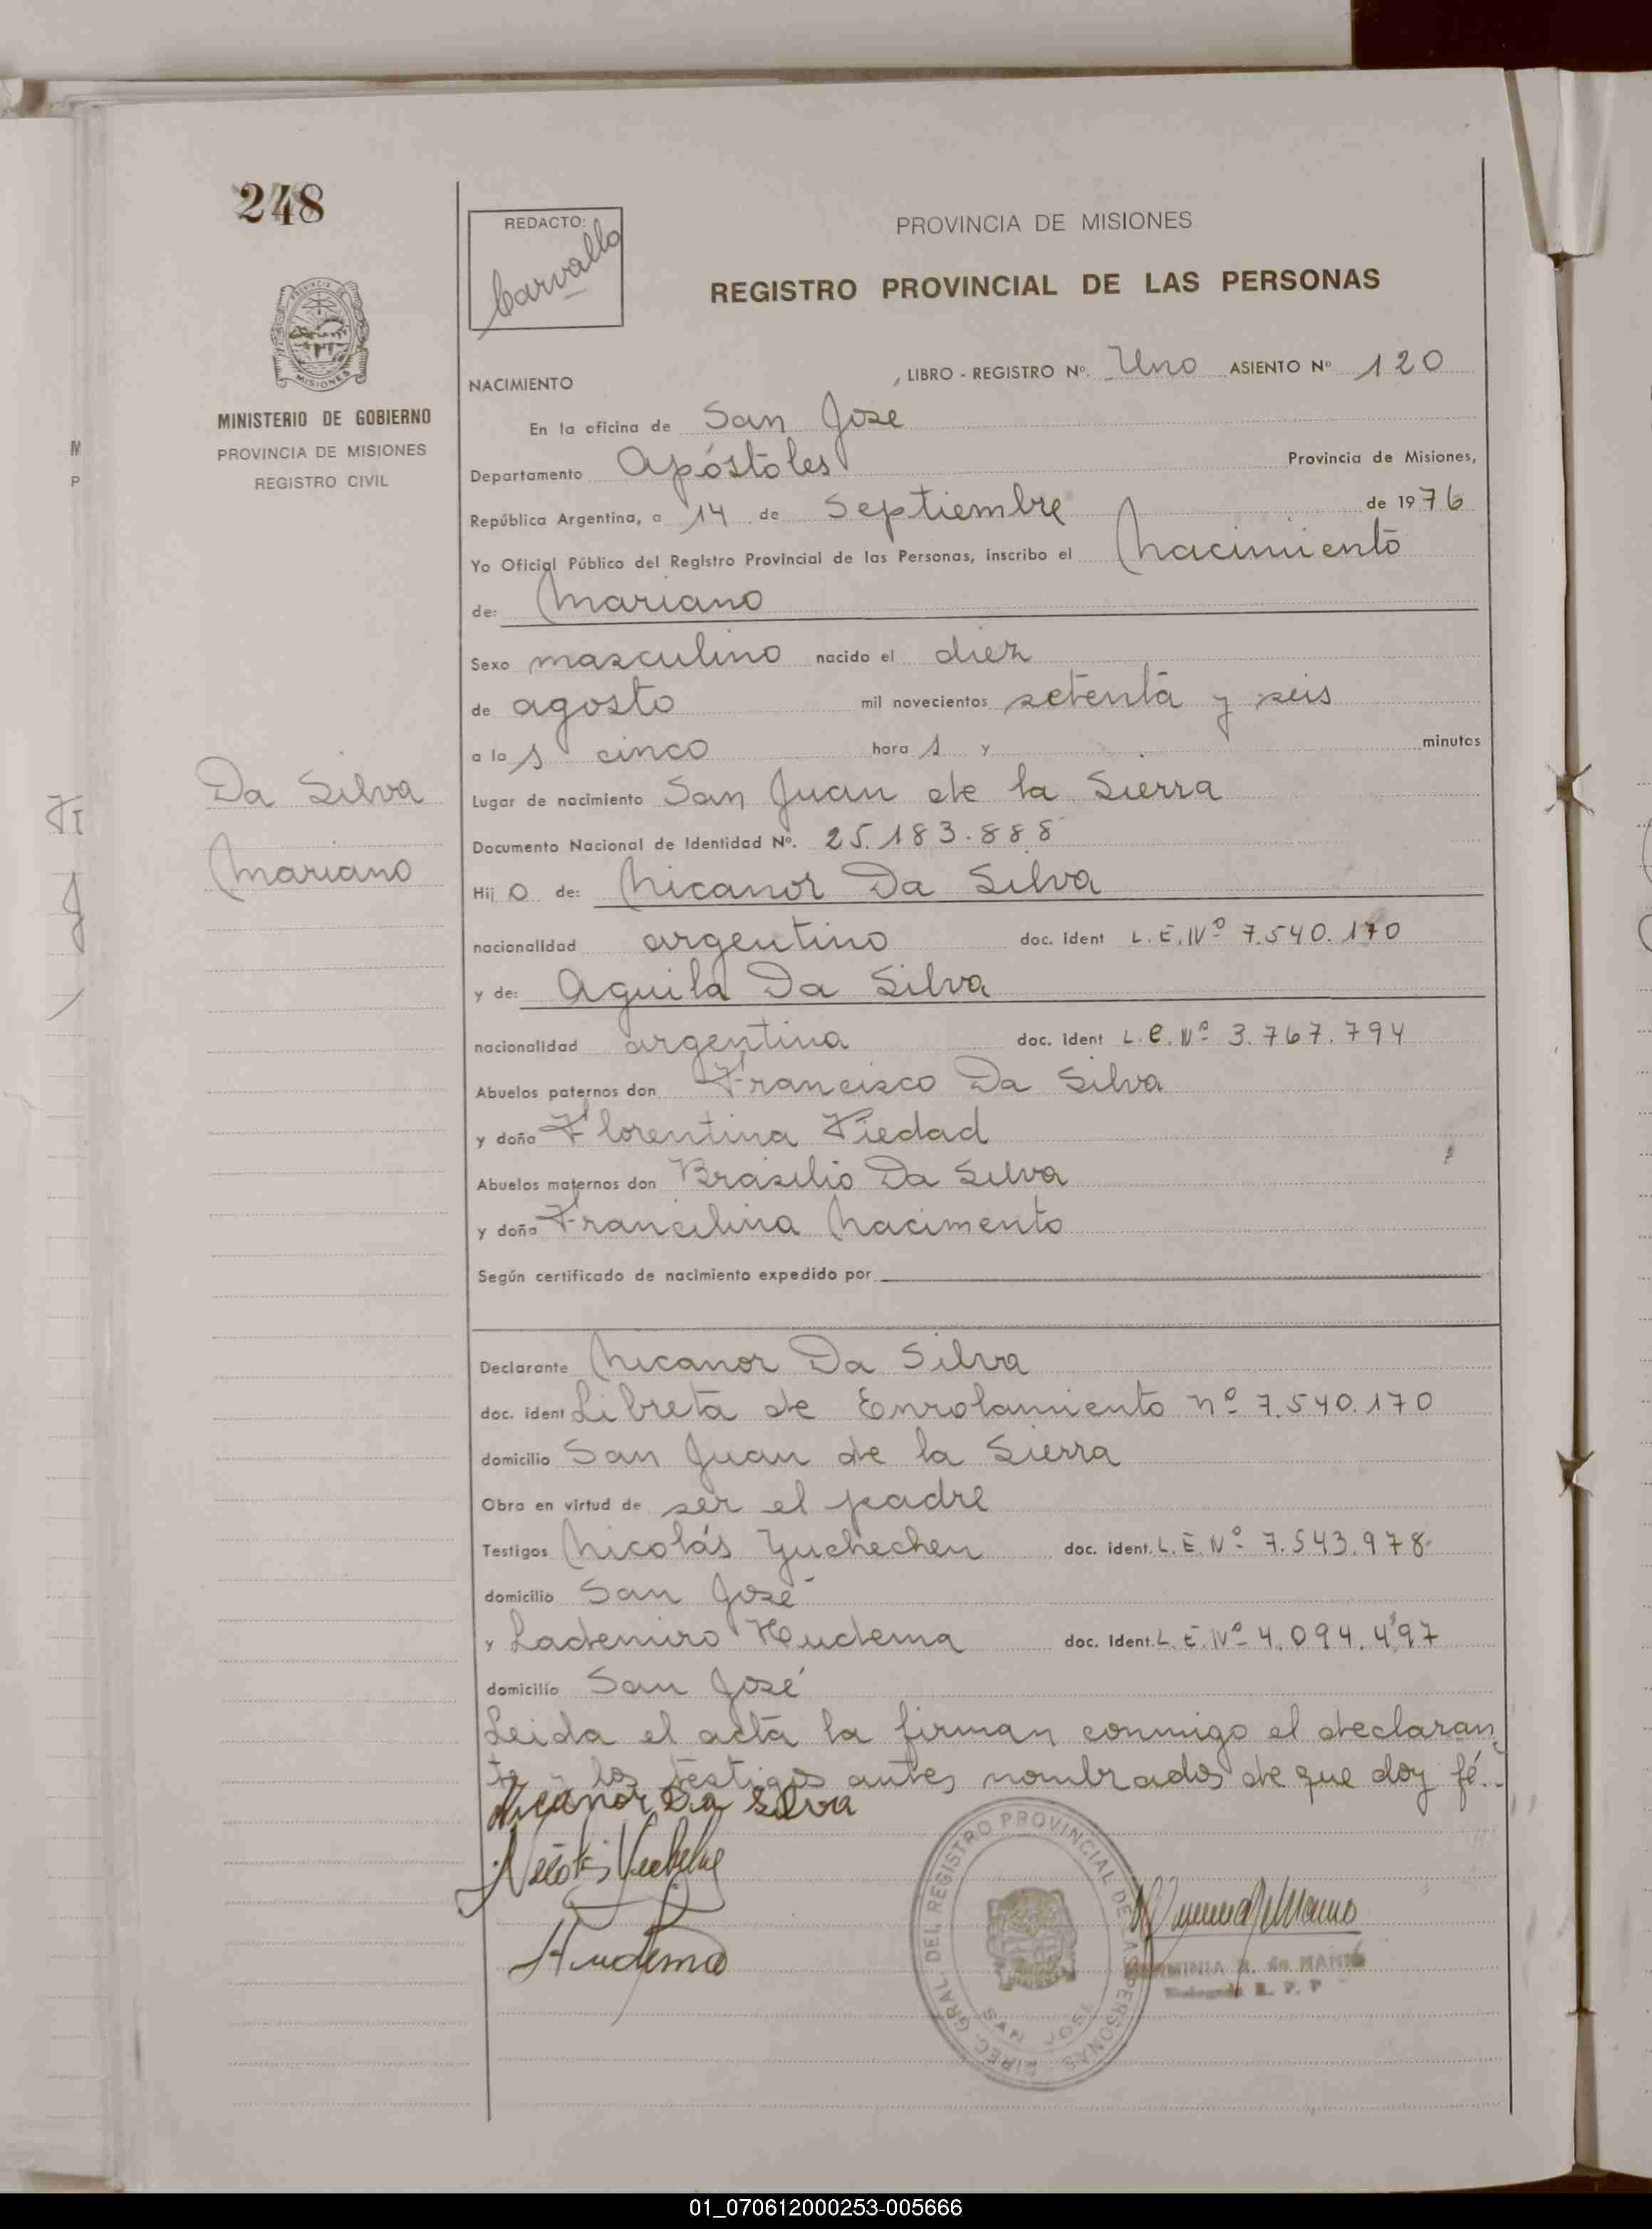 248
REDACTO:
Carvallo
PROVINCIA DE MISIONES
REGISTRO PROVINCIAL DE LAS PERSONAS
MINISTERIO DE GOBIERNO
PROVINCIA DE MISIONES
REGISTRO CIVIL
NACIMIENTO
LIBRO - REGISTRO Nº. Uno ASIENTO Nº 120
En la oficina de San Jose
Departamento Apóstoles Provincia de Misiones,
República Argentina, a 14 de Septiembre de 1976
Yo Oficial Público del Registro Provincial de las Personas, inscribo el Nacimiento
de: Mariano
Sexo masculino nacido el diez
de agosto mil novecientos setenta y seis
a las cinco horas y minutos
Da Silva
Mariano
Lugar de nacimiento San Juan de la Sierra
Documento Nacional de Identidad Nº. 25.183.888
Hijo de: Nicanor Da Silva
nacionalidad argentino doc. ident L.E.Nº 7.540.170
y de: Aguila Da Silva
nacionalidad argentina doc. ident L.C.Nº 3.767.794
Abuelos paternos don Francisco Da Silva
y doña Florentina Piedad
Abuelos maternos don Brasilio Da Silva
y doña Francilina Nacimento
Según certificado de nacimiento expedido por
Declarante Nicanor Da Silva
doc. ident Libreta de Enrolamiento nº 7.540.170
domicilio San Juan de la Sierra
Obra en virtud de ser el padre
Testigos Nicolás Yuchechen doc. ident. L.E.Nº 7.543.978
domicilio San José
y Lademiro Hudema doc. Ident. L.E.Nº 4.094.497
domicilio San José
Leida el acta la firman conmigo el declaran
te y los testigos antes nombrados de que doy fé.
Nicanor Da Silva
Hudema
DIREC. GRAL. DEL REGISTRO PROVINCIAL DE LAS PERSONAS
SAN JOSE
01_070612000253-005666